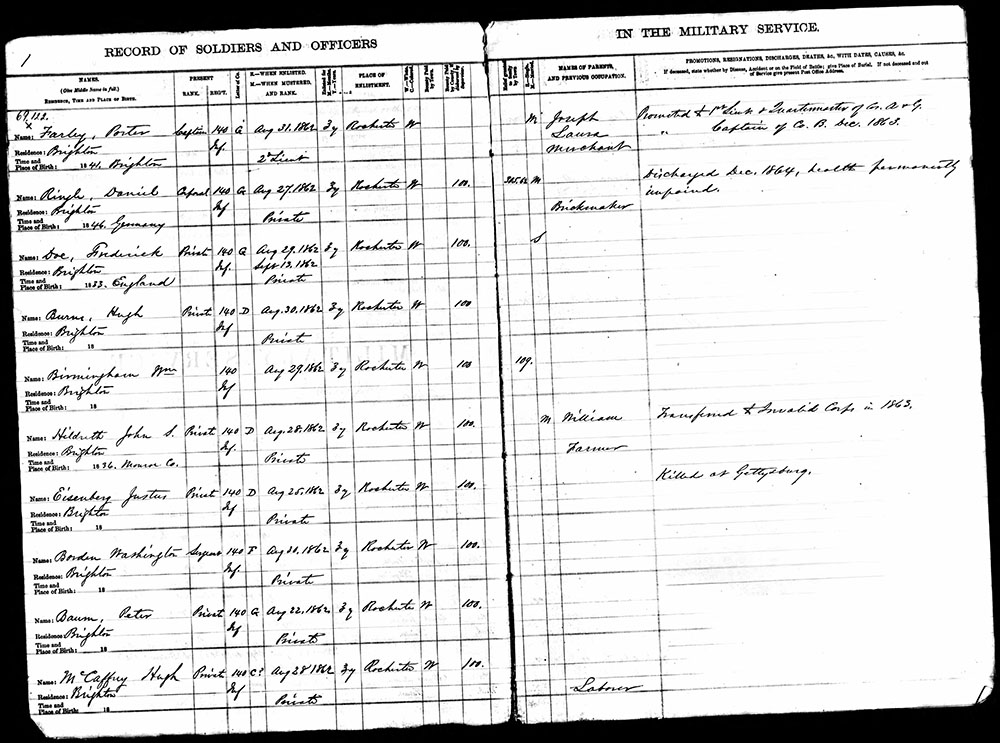 1
RECORD OF SOLDIERS AND OFFICERS
IN THE MILITARY SERVICE.
NAMES. (Give Middle Name in full.) RESIDENCE, TIME AND PLACE OF BIRTH.
PRESENT RANK. REG'T.
Letter of Co.
E.—WHEN ENLISTED. M.—WHEN MUSTERED, AND RANK.
PLACE OF ENLISTMENT.
NAMES OF PARENTS, AND PREVIOUS OCCUPATION.
PROMOTIONS, RESIGNATIONS, DISCHARGES, DEATHS, &c., WITH DATES, CAUSES, &c.
If deceased, state whether by Disease, Accident or on the Field of Battle; give Place of Burial. If not deceased and out of Service give present Post Office Address.
Name: Farley, Porter Captain 140 Aug 31. 1862 3 y Rochester W M Joseph Promoted to 1st Lieut & Quartermaster of Co. A & G.
Residence: Brighton Inf. Laura " Captain of Co. B. Dec. 1863.
Time and Place of Birth: 1841. Brighton 2d Lieut Merchant
Name: Daniel Corporal 140 G Aug 27. 1862 3y Rochester W 100. M Discharged Dec. 1864, health permanently
Residence: Brighton Inf impaired.
Time and Place of Birth: 1846. Germany Private Brickmaker
Name: Doe, Frederick Private 140 G Aug 29. 1862 3 y Rochester W 100. S
Residence: Brighton Inf. Sept 13. 1862
Time and Place of Birth: 1833. England Private
Name: Burns, Hugh Privat 140 D Aug. 30. 1862 3 y Rochester W 100
Residence: Brighton Inf
Time and Place of Birth: 18 Private
Name: Birmingham Wm 140 Aug 29. 1862 3 y Rochester W 100 109.
Residence: Brighton Inf
Time and Place of Birth: 18
Name: Hildreth John S. Privat 140 D Aug. 28. 1862 3 y Rochester W 100. M William Transferred to Invalid Corps in 1863.
Residence: Brighton Inf. Farmer
Time and Place of Birth: 1836. Monroe Co. Private
Name: Eisenberg Justus Privat 140 D Aug 25. 1862 3 y Rochester W 100. Killed at Gettysburg.
Residence: Brighton Inf
Time and Place of Birth: 18 Private
Name: Borden Washington Sergeant 140 F Aug 30. 1862 3 y Rochester W 100.
Residence: Brighton Inf.
Time and Place of Birth: 18 Private
Name: Baum, Peter Private 140 G Aug 22. 1862 3 y Rochester W 100.
Residence: Brighton Inf
Time and Place of Birth: 18 Private
Name: McCaffrey Hugh Private 140 C? Aug 28 1862 3 y Rochester W 100.
Residence: Brighton Inf
Time and Place of Birth: 18 Private Laborer
1